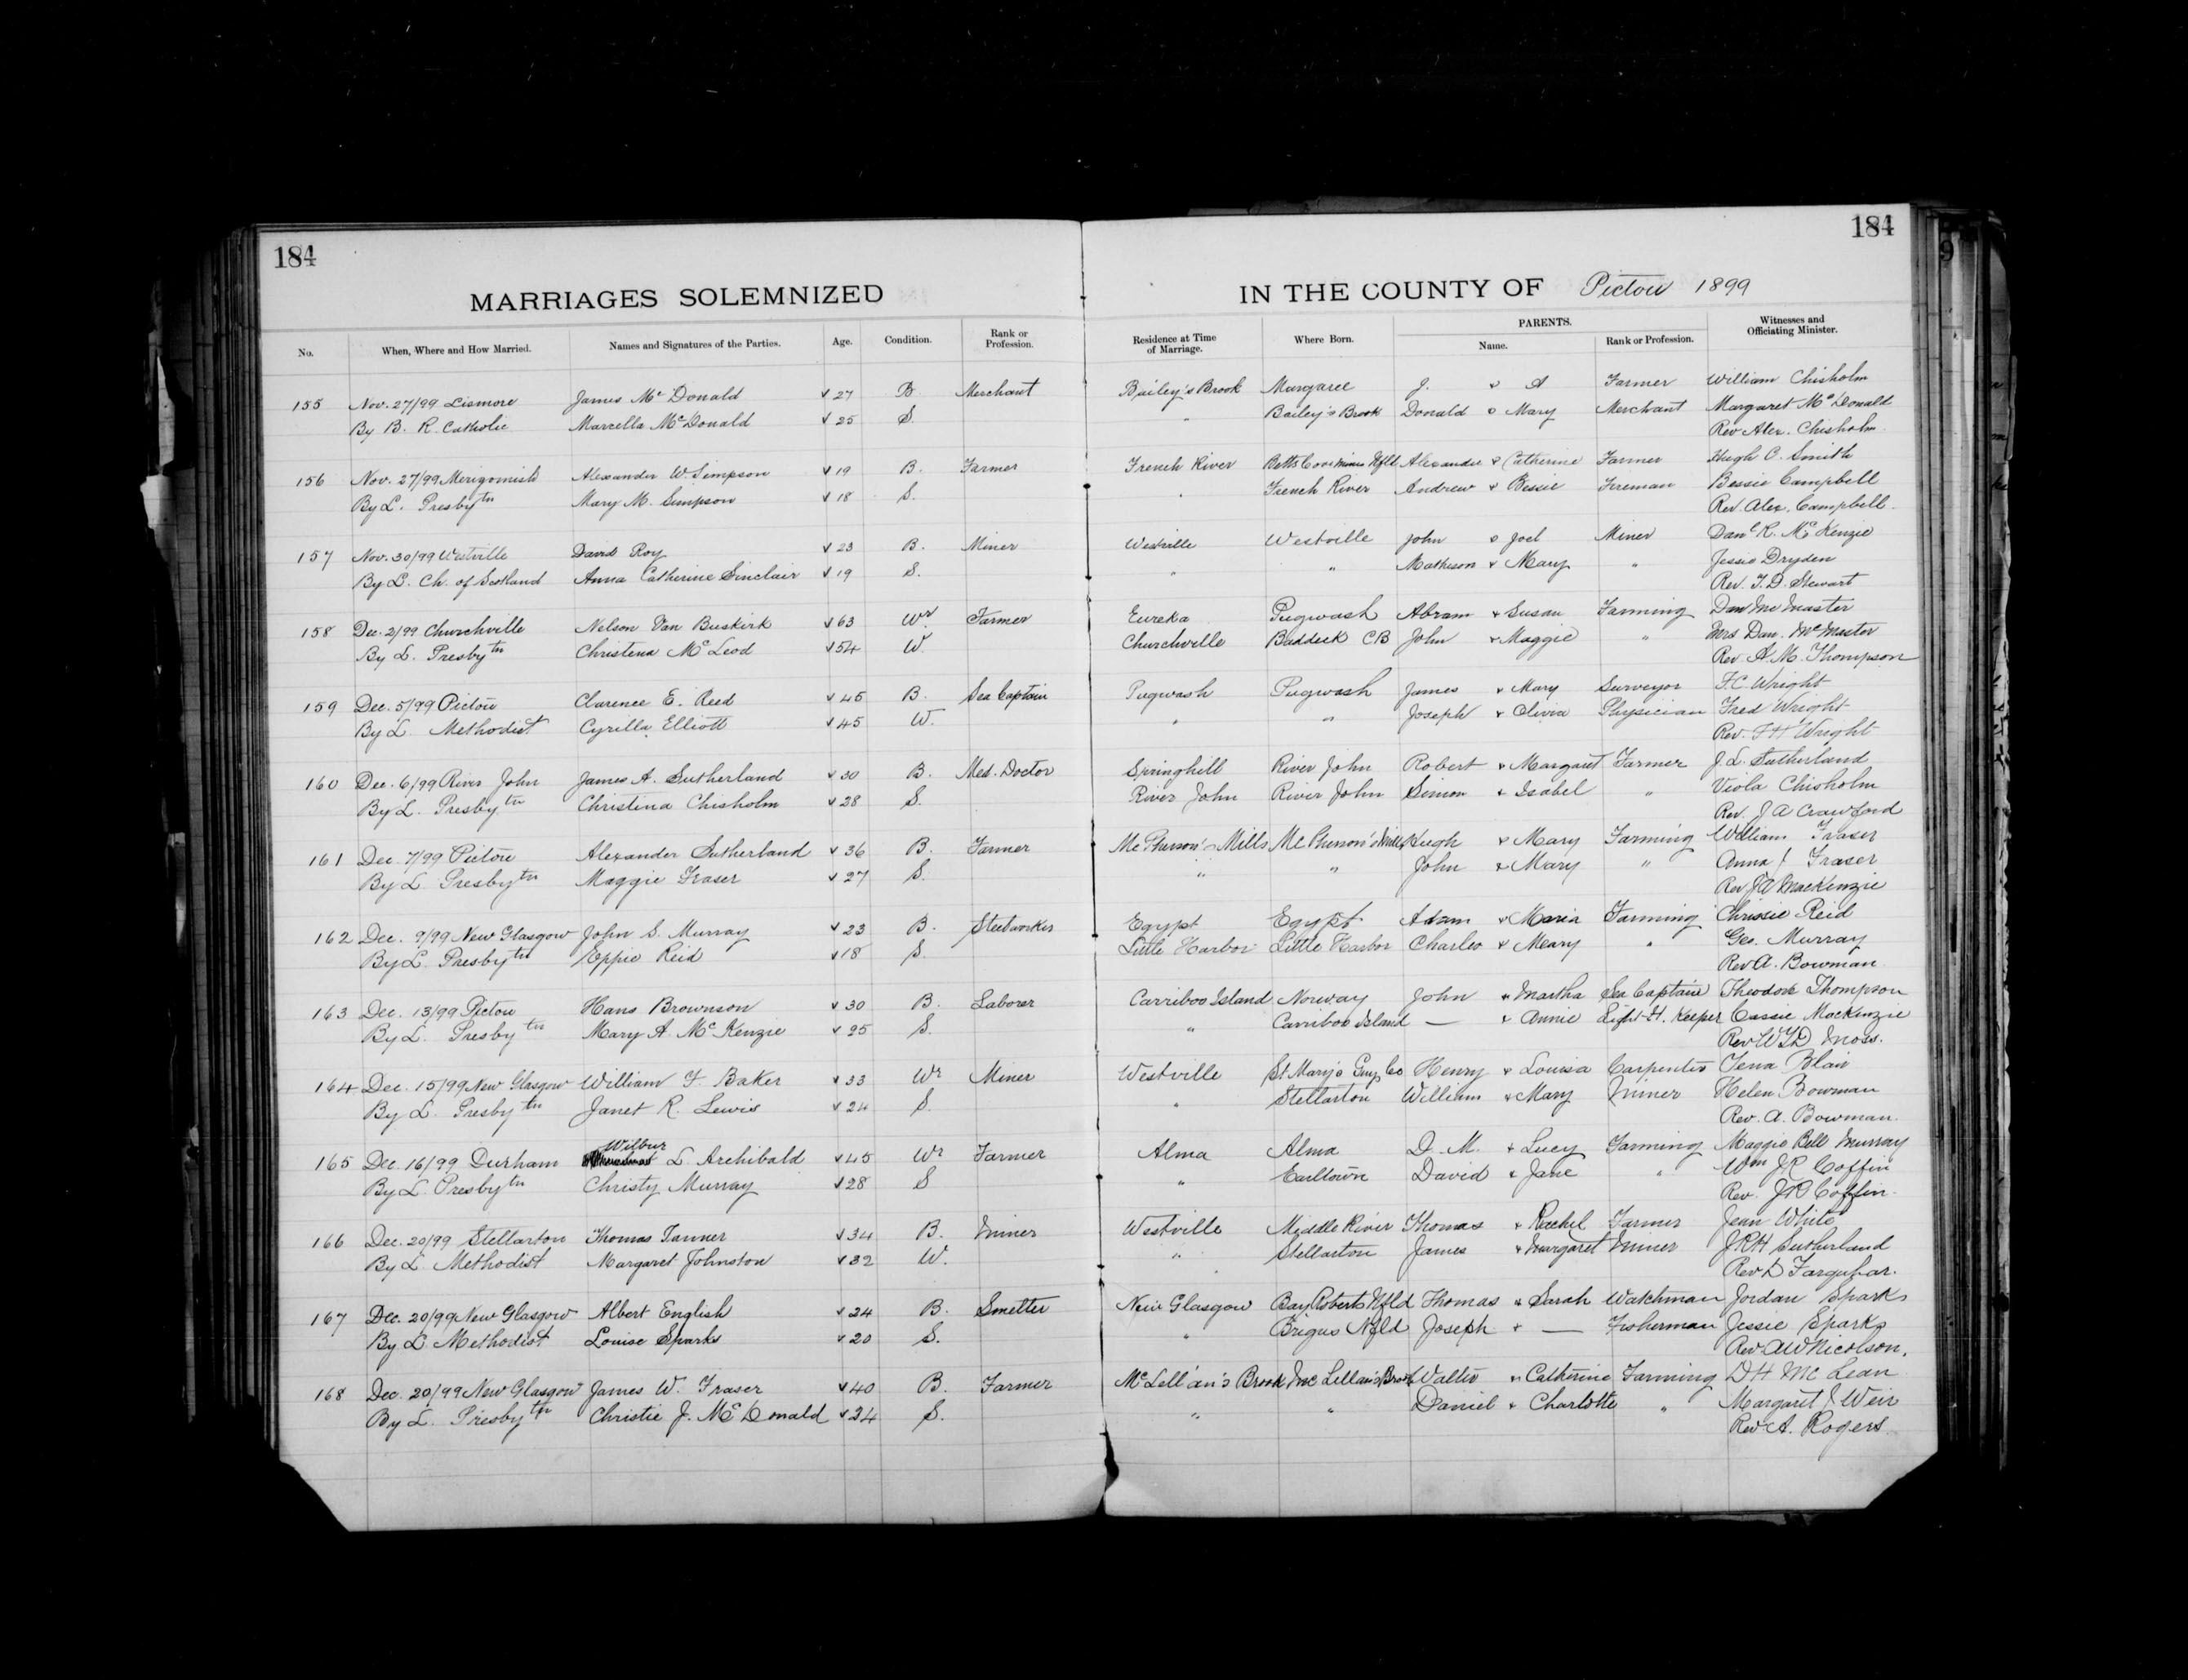 184
184
MARRIAGES SOLEMNIZED IN THE COUNTY OF Pictou 1899
No. When, Where and How Married. Names and Signatures of the Parties. Age. Condition. Rank or Profession. Residence at Time of Marriage. Where Born. PARENTS. Name. Rank or Profession. Witnesses and Officiating Minister.
155 Nov. 27/99 Lismore James McDonald 27 B Merchant Bailey's Brook Margaree J. & A Farmer William Chisholm
By B. R. Catholic Marcella McDonald 25 S. " Bailey's Brook Donald & Mary Merchant Margaret McDonald
Rev Alex. Chisholm.
156 Nov. 27/99 Merigomish Alexander W. Simpson 19 B. Farmer French River Betts Cove Mines Nfld Alexander & Catherine Farmer Hugh C. Smith
By L. Presbytn Mary M. Simpson 18 S. " French River Andrew & Bessie Fireman Bessie Campbell
Rev. Alex. Campbell.
157 Nov. 30/99 Westville David Roy 23 B. Miner Westville Westville John & Joel Miner Danl R. McKenzie
By L. Ch. of Scotland Anna Catherine Sinclair 19 S. " " Matheson & Mary " Jessie Dryden
Rev. T. D. Stewart
158 Dec. 2/99 Churchville Nelson Van Buskirk 63 Wr. Farmer Eureka Pugwash Abram & Susan Farming Dan McMaster
By L. Presbytn Christena McLeod 54 W. Churchville Baddeck CB John & Maggie " Mrs Dan. McMaster
Rev A. M. Thompson
159 Dec. 5/99 Pictou Clarence E. Reed 45 B. Sea Captain Pugwash Pugwash James & Mary Surveyor F. C. Wright
By L. Methodist Cyrilla Elliott 45 W. " " Joseph & Olivia Physician Fred Wright
Rev. F H Wright
160 Dec. 6/99 River John James A. Sutherland 30 B. Med. Doctor Springhill River John Robert & Margaret Farmer J. L. Sutherland
By L. Presbytn Christina Chisholm 28 S. River John River John Simon & Isabel " Viola Chisholm
Rev. J A Crawford
161 Dec. 7/99 Pictou Alexander Sutherland 36 B. Farmer McPherson's Mills McPherson's Mills Hugh & Mary Farming William Fraser
By L. Presbytn Maggie Fraser 27 S. " " John & Mary " Anna J Fraser
Rev J A MacKenzie
162 Dec. 9/99 New Glasgow John S. Murray 23 B. Steelworker Egypt Egypt Adam & Maria Farming Chrissie Reid
By L. Presbytn Eppie Reid 18 S. Little Harbor Little Harbor Charles & Mary " Geo. Murray
Rev A. Bowman.
163 Dec. 13/99 Pictou Hans Brownson 30 B. Laborer Carriboo Island Norway John & Martha Sea Captain Theodore Thompson
By L. Presbytn Mary A. McKenzie 25 S. " Carriboo Island — & Annie Light-H. Keeper Cassie MacKenzie
Rev W T D Moss.
164 Dec. 15/99 New Glasgow William F. Baker 33 Wr Miner Westville St Mary's Guys Co Henry & Louisa Carpenter Tena Blair
By L. Presbytn Janet R. Lewis 24 S. " Stellarton William & Mary Miner Helen Bowman
Rev. A. Bowman.
165 Dec. 16/99 Durham Wilbur L. Archibald 45 Wr Farmer Alma Alma D. M. & Lucy Farming Maggie Bell Murray
By L. Presbytn Christy Murray 28 S " Earltown David & Jane " Wm J R Coffin
Rev. J R Coffin.
166 Dec. 20/99 Stellarton Thomas Tanner 34 B. Miner Westville Middle River Thomas & Rachel Farmer Jean White
By L. Methodist Margaret Johnston 32 W. " Stellarton James & Margaret Miner J R H Sutherland
Rev D Farquhar.
167 Dec. 20/99 New Glasgow Albert English 24 B. Smelter New Glasgow Bay Roberts Nfld Thomas & Sarah Watchman Jordan Sparks
By L Methodist Louise Sparks 20 S. " Brigus Nfld Joseph & — Fisherman Jessie Sparks
Rev. A W Nicolson.
168 Dec. 20/99 New Glasgow James W. Fraser 40 B. Farmer McLellan's Brook McLellan's Brook Walter & Catherine Farming D H McLean
By L. Presbytn Christie J. McDonald 24 S. " " Daniel & Charlotte " Margaret J Weir
Rev A. Rogers.